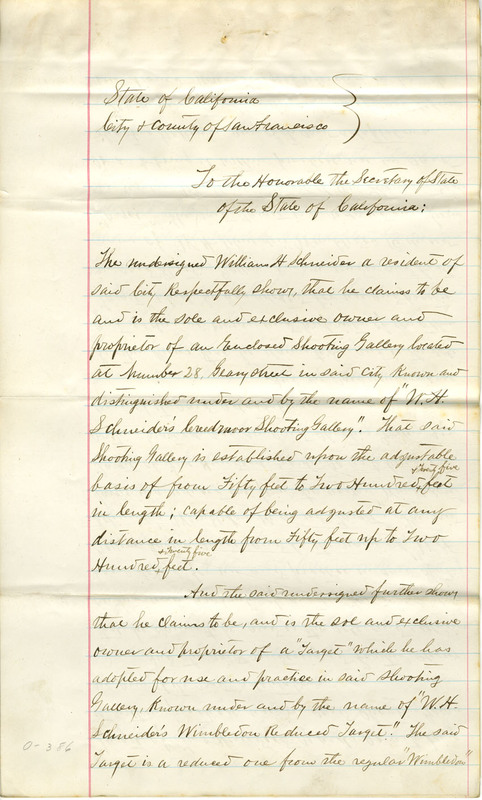 State of California
City & County of San Francisco
To the Honorable the Secretary of State
of the State of California:
The undersigned William H Schneider a resident of
said City Respectfully shows, that he claims to be
and is the sole and exclusive owner and
proprietor of an Enclosed Shooting Gallery located
at Number 28, Geary street in said City Known and
distinguished under and by the name of "W. H.
Schneider's Creedmoor Shooting Gallery". That said
Shooting Gallery is established upon the adjustable
basis of from Fifty feet to Two Hundred & Twenty five feet
in length; capable of being adjusted at any
distance in length from Fifty feet up to Two
Hundred & Twenty five feet.
And the said undersigned further shows
that he claims to be, and is the sol and exclusive
owner and proprietor of a "Target" which he has
adopted for use and practice in said shooting
Gallery, Known under and by the name of "W. H.
Schneider's Wimbledon Reduced Target." The said
Target is a reduced one from the regular "Wimbledon"
0-386